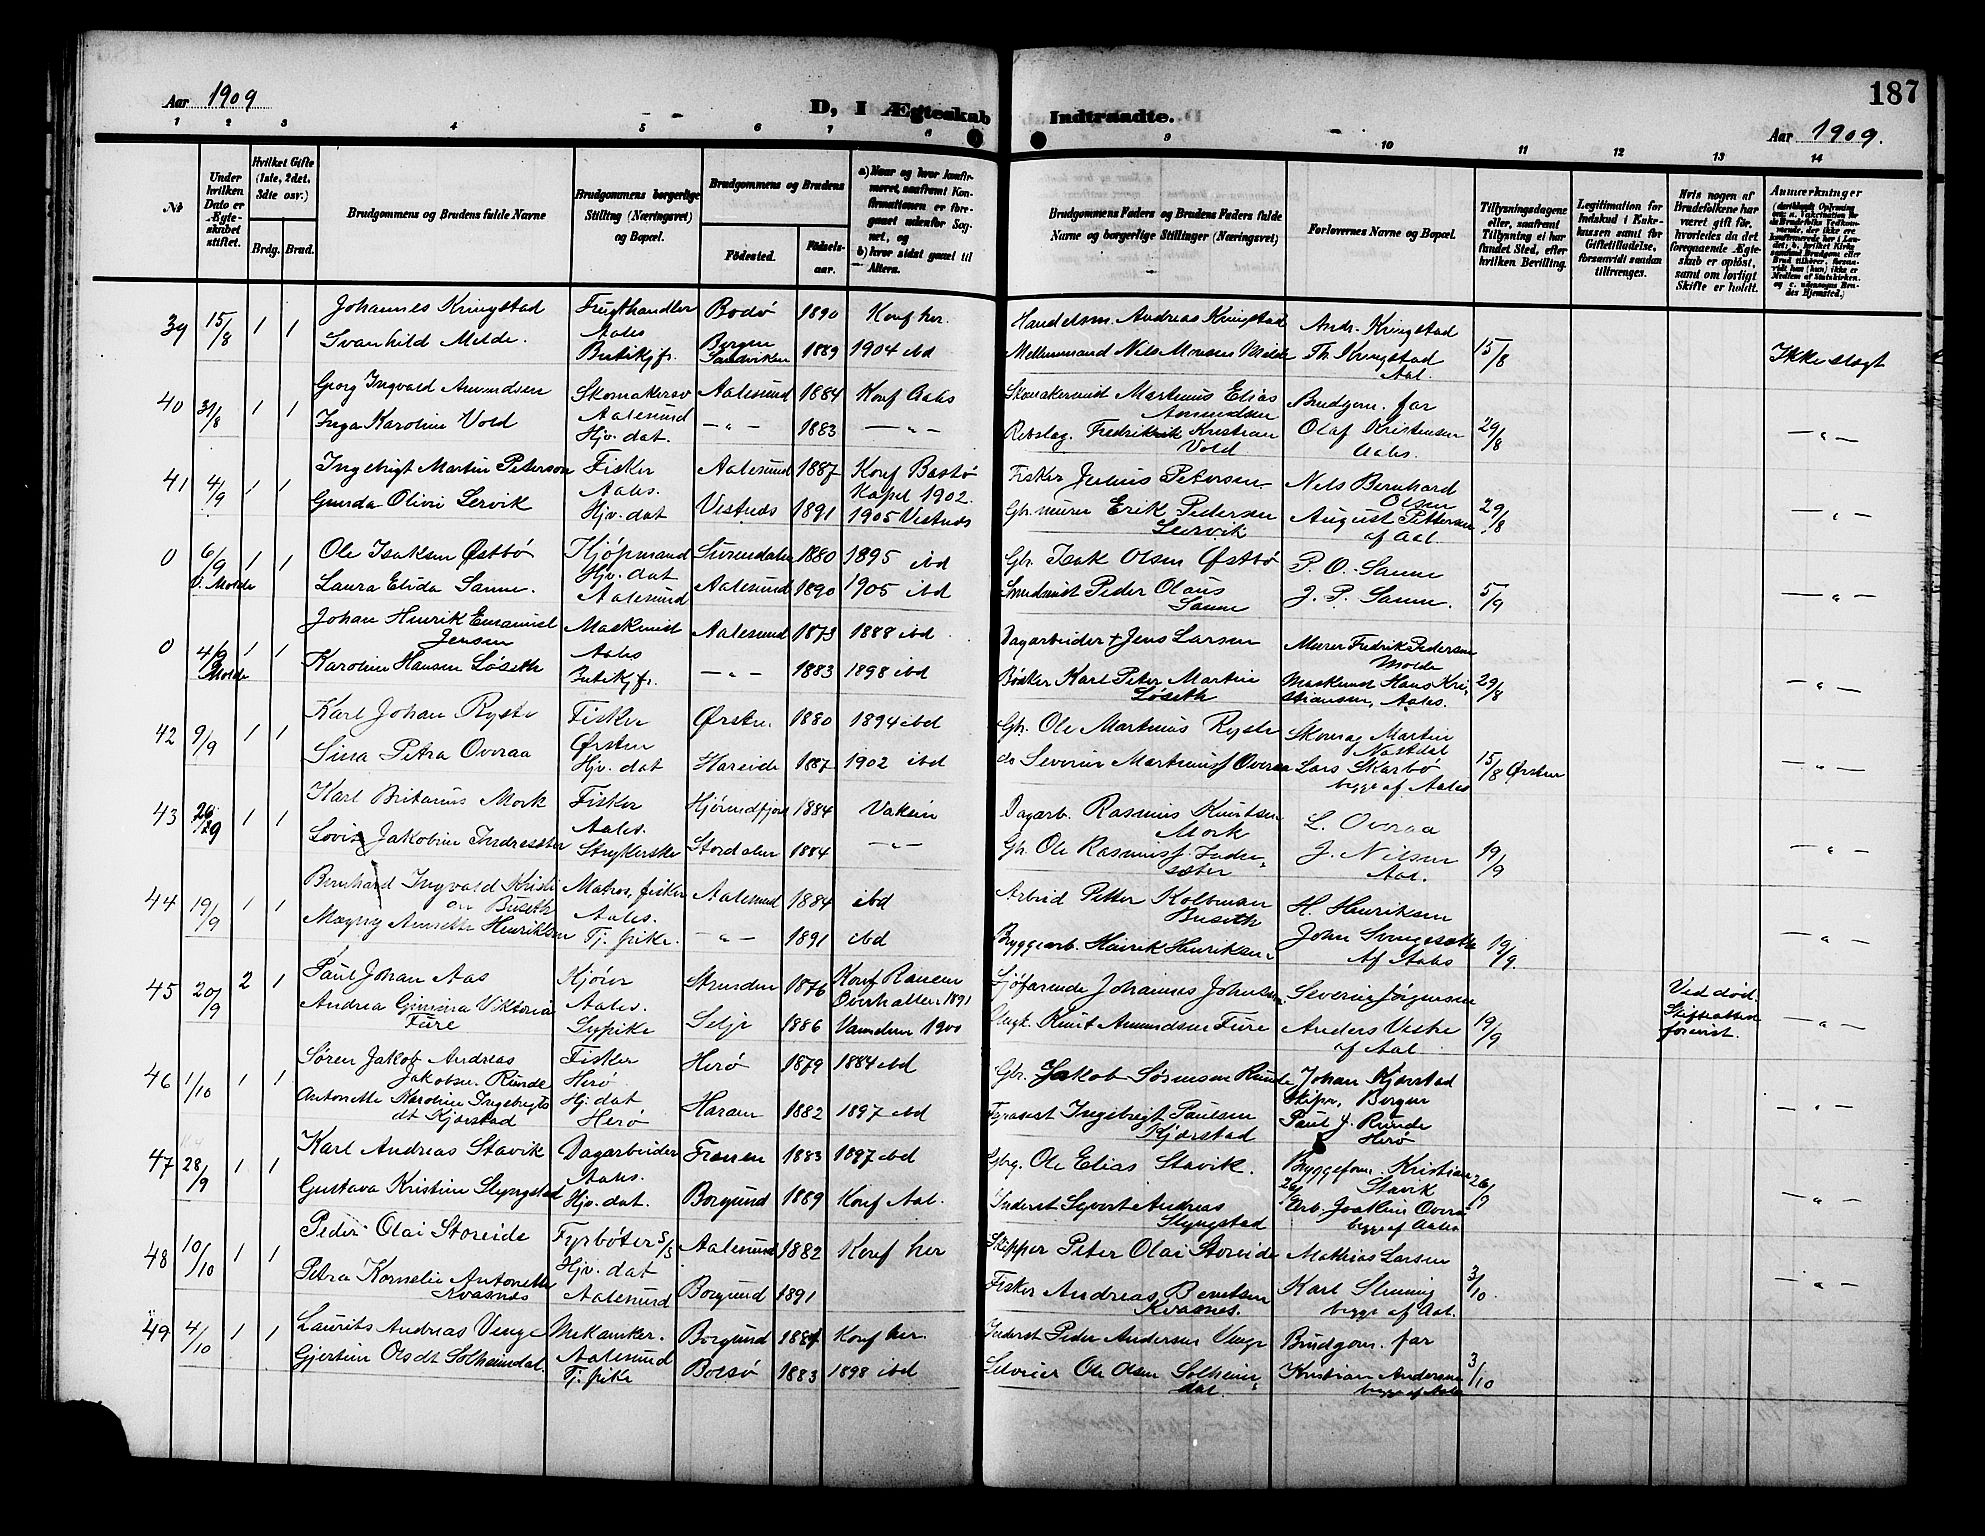 187
Aar 1909
D, I Ægteskab Indtraadte.
Aar 1909.
1 2 3 4 5 6 7 8 9 10 11 12 13 14
№
Under hvilken Dato er Ægteskabet stiftet.
Hvilket Gifte (1ste, 2det, 3die osv.)
Brdg. Brud.
Brudgommens og Brudens fulde Navne
Brudgommens borgerlige Stilling (Næringsvei) og Bopæl.
Brudgommens og Brudens
Fødested.
Fødselsaar.
a) Naar og hvor konfirmeret, saafremt Konfirmationen er foregaaet udenfor Sognet, og
b) hvor sidst gaaet til Alters.
Brudgommens Faders og Brudens Faders fulde Navne og borgerlige Stillinger (Næringsvei)
Forlovernes Navne og Bopæl.
Tillysningsdagene eller, saafremt Tillysning ei har fundet Sted, efter hvilken Bevilling.
Legitimation for Indskud i Enkekassen samt for Giftetilladelse, forsaavidt saadan tiltrænges.
Hvis nogen af Brudefolkene har været gift før, hvorledes da det foregaaende Ægteskab er opløst, samt om lovligt Skifte er holdt.
Anmærkninger
39 15/8 1 1 Johannes Kringstad Frugthandler Bodø 1890 Konf her. Handelsm. Andreas Kringstad Andr. Kringstad
Aales
Svanhild Melde. Butikjfr. Bergen Sandviken 1889 1904 ibd Nils Monsen Melde Th. Kringstad 15/8 Ikke slegt
Aal.
40 31/8 1 1 Georg Ingvald Amundsen Skomakersv Aalesund 1884 Konf Aales Martinus Elias Amundsen Brudgom. far
Aalesund
Inga Karoline Vold Hjv. dat. — „ — 1883 — „ — Rebslag. Fredrik Kristian Vold Olaf Kristensen 29/8 — „ —
Aales.
41 4/9 1 1 Ingebrigt Martin Peterson Fisker Aalesund 1887 Konf Bastø Kapel 1902. Fisker Julius Petersen Nils Bernhard Olsen
Aales.
Gunda Olivie Lervik Hjv. dat Vestnes 1891 1905 Vestnes Gbr. murer Erik Pedersen Leirvik August Pettersen 29/8 — „ —
af Aal.
0 6/9 1 1 Ole Isaksen Østbø Kjøpmand Surendalen 1880 1895 ibd Gbr. Isak Olsen Østbø P. O. Sanne
V. Molde Hjv. dat
Laura Elida Sanne. Aalesund Aalesund 1890 1905 ibd Peder Olaus Sanne J. P. Sanne. 5/9 — „ —
0 4/9 1 1 Johan Henrik Emanuel Jensen Maskinist Aalesund 1873 1888 ibd Dagarbeider + Jens Larsen Murer Fredrik Pedersen Molde
Molde Aales
Karoline Hansen Løseth Butikjfr. — „ — 1883 1898 ibd Bøkker Karl Peter Martin Løseth Maskinist Hans Kristiansen, Aales. 29/8 — „ —
42 9/9 1 1 Karl Johan Ryste Fisker Ørsten 1880 1894 ibd Gbr. Ole Martinus Ryste Skomag Martin Nastdal
Ørsten
Sina Petra Overaa Hjv. dat Hareide 1887 1902 ibd do Severin Martinusf Overaa Lars Skarbø 15/8 Ørsten — „ —
begge af Aales
43 26/9 1 1 Karl Britanus Mork Fisker Hjørundfjord 1884 Vaksin Dagarb. Rasmus Knutsen Mork L. Overaa
Aales.
Jakobine Indresæter Strykerske Stordalen 1884 — „ — Gbr. Ole Rasmusf. Indresæter J. Nilsen 19/9 — „ —
Aal.
44 19/9 1 1 Bernhard Ingvald Kristian Buseth Matros, fisker Aalesund 1884 ibd Arbeid Petter Kolbman Buseth H. Henriksen
Aales.
Magny Annette Henriksen Tj. pike. — „ — 1891 ibd Byggearb. Henrik Henriksen John 19/9. — „ —
Af Aales
45 20/9 2 1 Paul Johan Aas Kjører Strinden 1876 Konf Ranem Overhallen 1891 Sjøfarende Johannes Johnsen Severin Jørgensen Ved død.
Aales.
Andrea Gimina Viktoria Fure Sypike Selje 1886 1900 Knut Amundsen Fure Anders Vestre 19/9 — „ —
af Aal.
46 1/10 1 1 Søren Jakob Andreas Jakobsen Runde Fisker Herø 1879 1884 ibd Gbr. Jakob Sørensen Runde Johan Kjørstad
Herø Skipr, Bergen
Antonette Karoline Ingebrigtsdt Kjørstad Hj. dat Haram 1882 1897 ibd Ingebrigt Paulsen Kjørstad Paul J. Runde — „ —
Herø Herø
47 28/9 1 1 Karl Andreas Stavik Dagarbeider Fræna 1883 1897 ibd Gbrg. Ole Elias Stavik. Byggeform. Kristian Stavik 26/9
Aales.
Gustava Kristine Slyngstad Hjv. dat. Borgund 1889 Konf Aal. Inderst Syvert Andreas Slyngstad Arb. Joakim Overaa — „ —
begge af Aales
48 10/10 1 1 Peder Olai Storeide Fyrbøter S/S Aalesund 1882 Konf her Skipper Peter Olai Storeide Mathias Larsen
Hjv. dat
Petra Kornelie Antonette Kvasnes Aalesund Borgund 1891 Fisker Andreas Bentsen Kvasnes. Karl 3/10 — „ —
begge af Aal.
49 4/10 1 1 Laurits Andreas Venge Mekaniker. Borgund 1884 Konf her. Inderst Peder Andersen Venge Brudgom. far
Aalesund
Gjertine Olsdt Solheimdal. Tj. pike Bolsø 1883 1898 ibd Selveier Ole Olsen Solheimdal. Kristian Andersen 3/10
begge af Aales